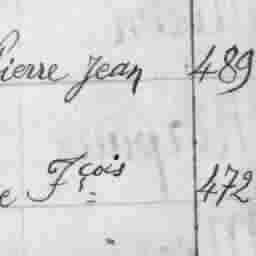 Pierre Jean 489
e Fçois 472